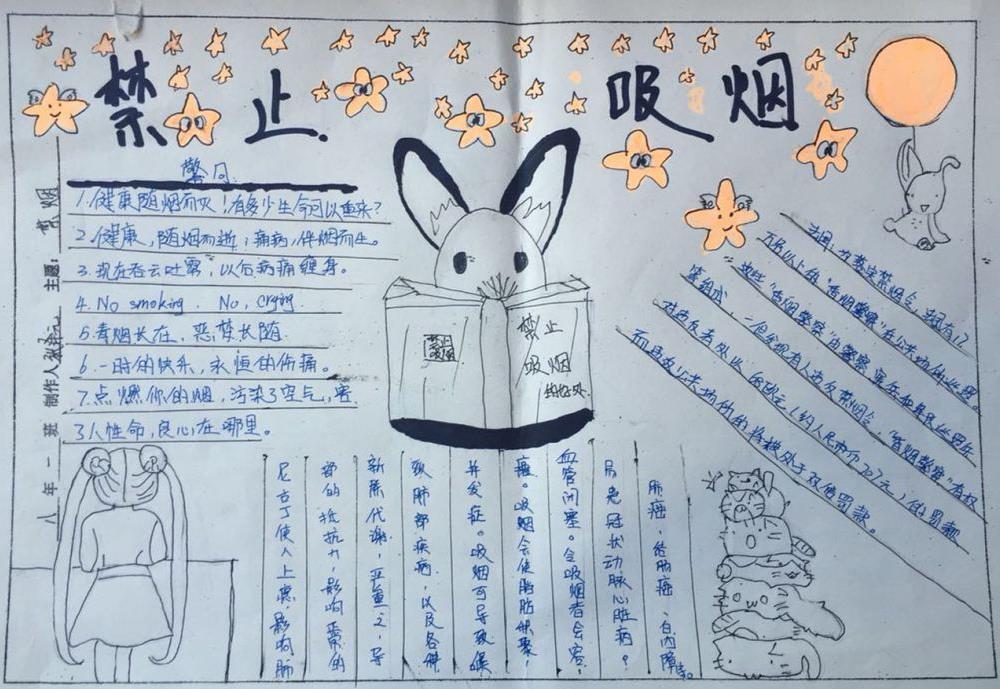 禁止吸烟
警句
1.健康随烟而灭!有多少生命可以重来?
2.健康,随烟而逝;痛病,伴烟而生。
3.现在吞云吐雾,以后病痛缠身。
4.No smoking. No, crying.
5.香烟长在,恶梦长随.
6.一时的快乐,永恒的伤痛。
7.点燃你的烟,污染了空气,害
了人性命,良心在哪里。
八年一班 制作人 主题:禁烟
禁止
吸烟
的好处
禁止
吸烟
尼古丁使人上瘾,影响肺
部的抵抗力,影响正常的
新陈代谢,严重之,导
致肺部疾病,以及各种
并发症。吸烟可导致喉
癌。吸烟会使脂肪积聚,
血管闭塞。令吸烟者会容
易患冠状动脉心脏病?
肺癌,结肠癌,白内障
万名以上的"香烟警察"在公共场所巡逻。
这些"香烟警察"由警察
一但发现有人违反禁烟令,"香烟警察"有权
对违反者处以
而且
公共场所的
处于双倍罚款。